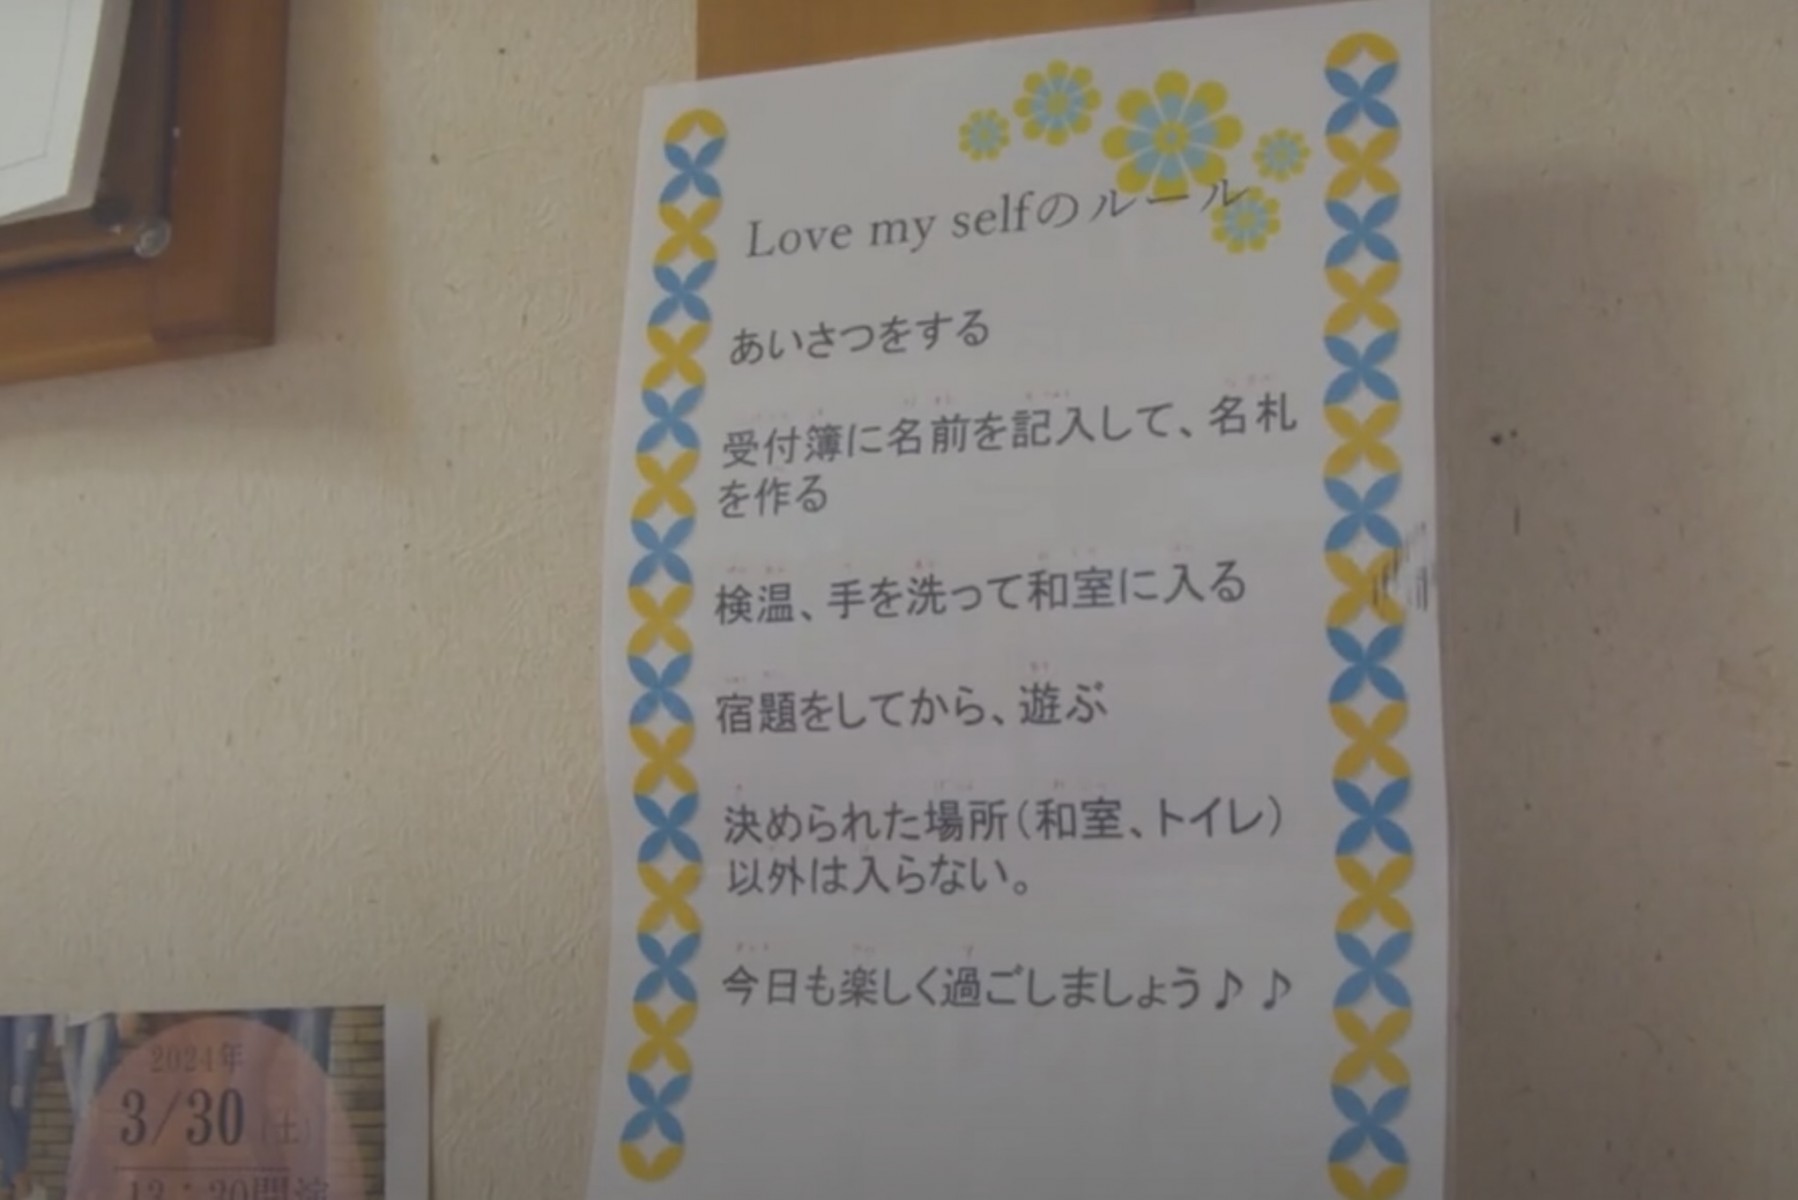 Love my selfのルール
あいさつをする
受付簿に名前を記入して、名札
を作る
検温、手を洗って和室に入る
宿題をしてから、遊ぶ
決められた場所(和室、トイレ)
以外は入らない。
今日も楽しく過ごしましょう♪♪
2024年
3/30(土)
13:20開演